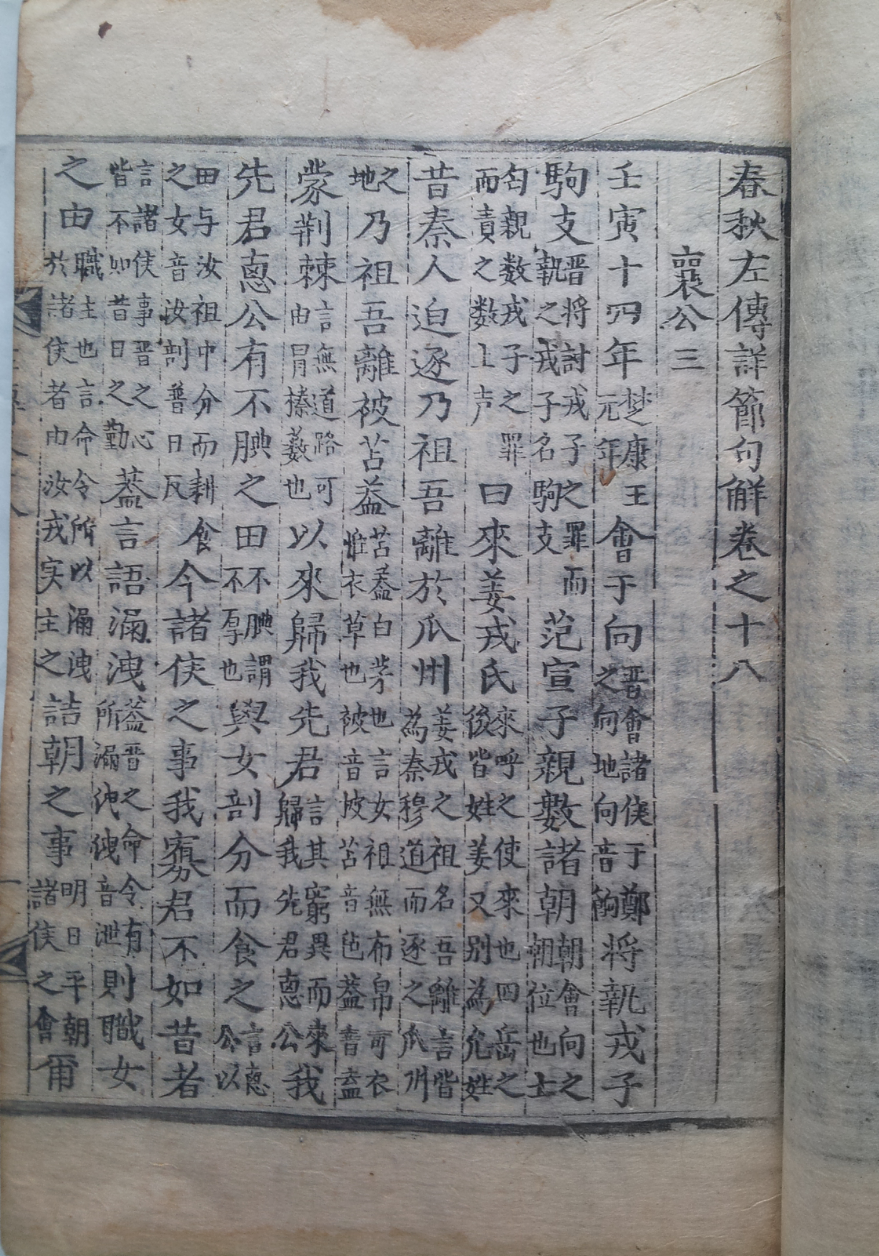 春秋左傳詳節句解卷之十八
襄公三
壬寅十四年楚康王元年會于向晋會諸侯于鄭之向地向音餉將執戎子
駒支晋將討戎子之罪而執之戎子名駒支范宣子親數諸朝朝會向之朝位也士
匄親数戎子之罪而責之数上声曰來姜戎氏來呼之使來也四岳之後皆姓姜又別為允姓
昔秦人迫逐乃祖吾離於瓜州姜戎之祖名吾離言皆為秦穆道而逐之瓜州
之地乃祖吾離被苫葢苫葢白茅也言女祖無布帛可衣惟衣草也被音披苫音葢音盍
蒙荆棘言無道路可由冐榛藂也以來歸我先君言其窮異而來歸我先君惠公我
先君惠公有不腆之田不腆謂不厚也與女剖分而食之言惠公以
田与汝祖中分而耕食之女音汝剖普日反今諸侯之事我寡君不如昔者
言諸侯事晋之心皆不如昔日之勤葢言語漏洩葢晋之命令有所漏洩洩音泄則職女
之由職主也言命令所以漏洩於諸侯者由汝戎实主之詰朝之事明日平朝諸侯之會爾